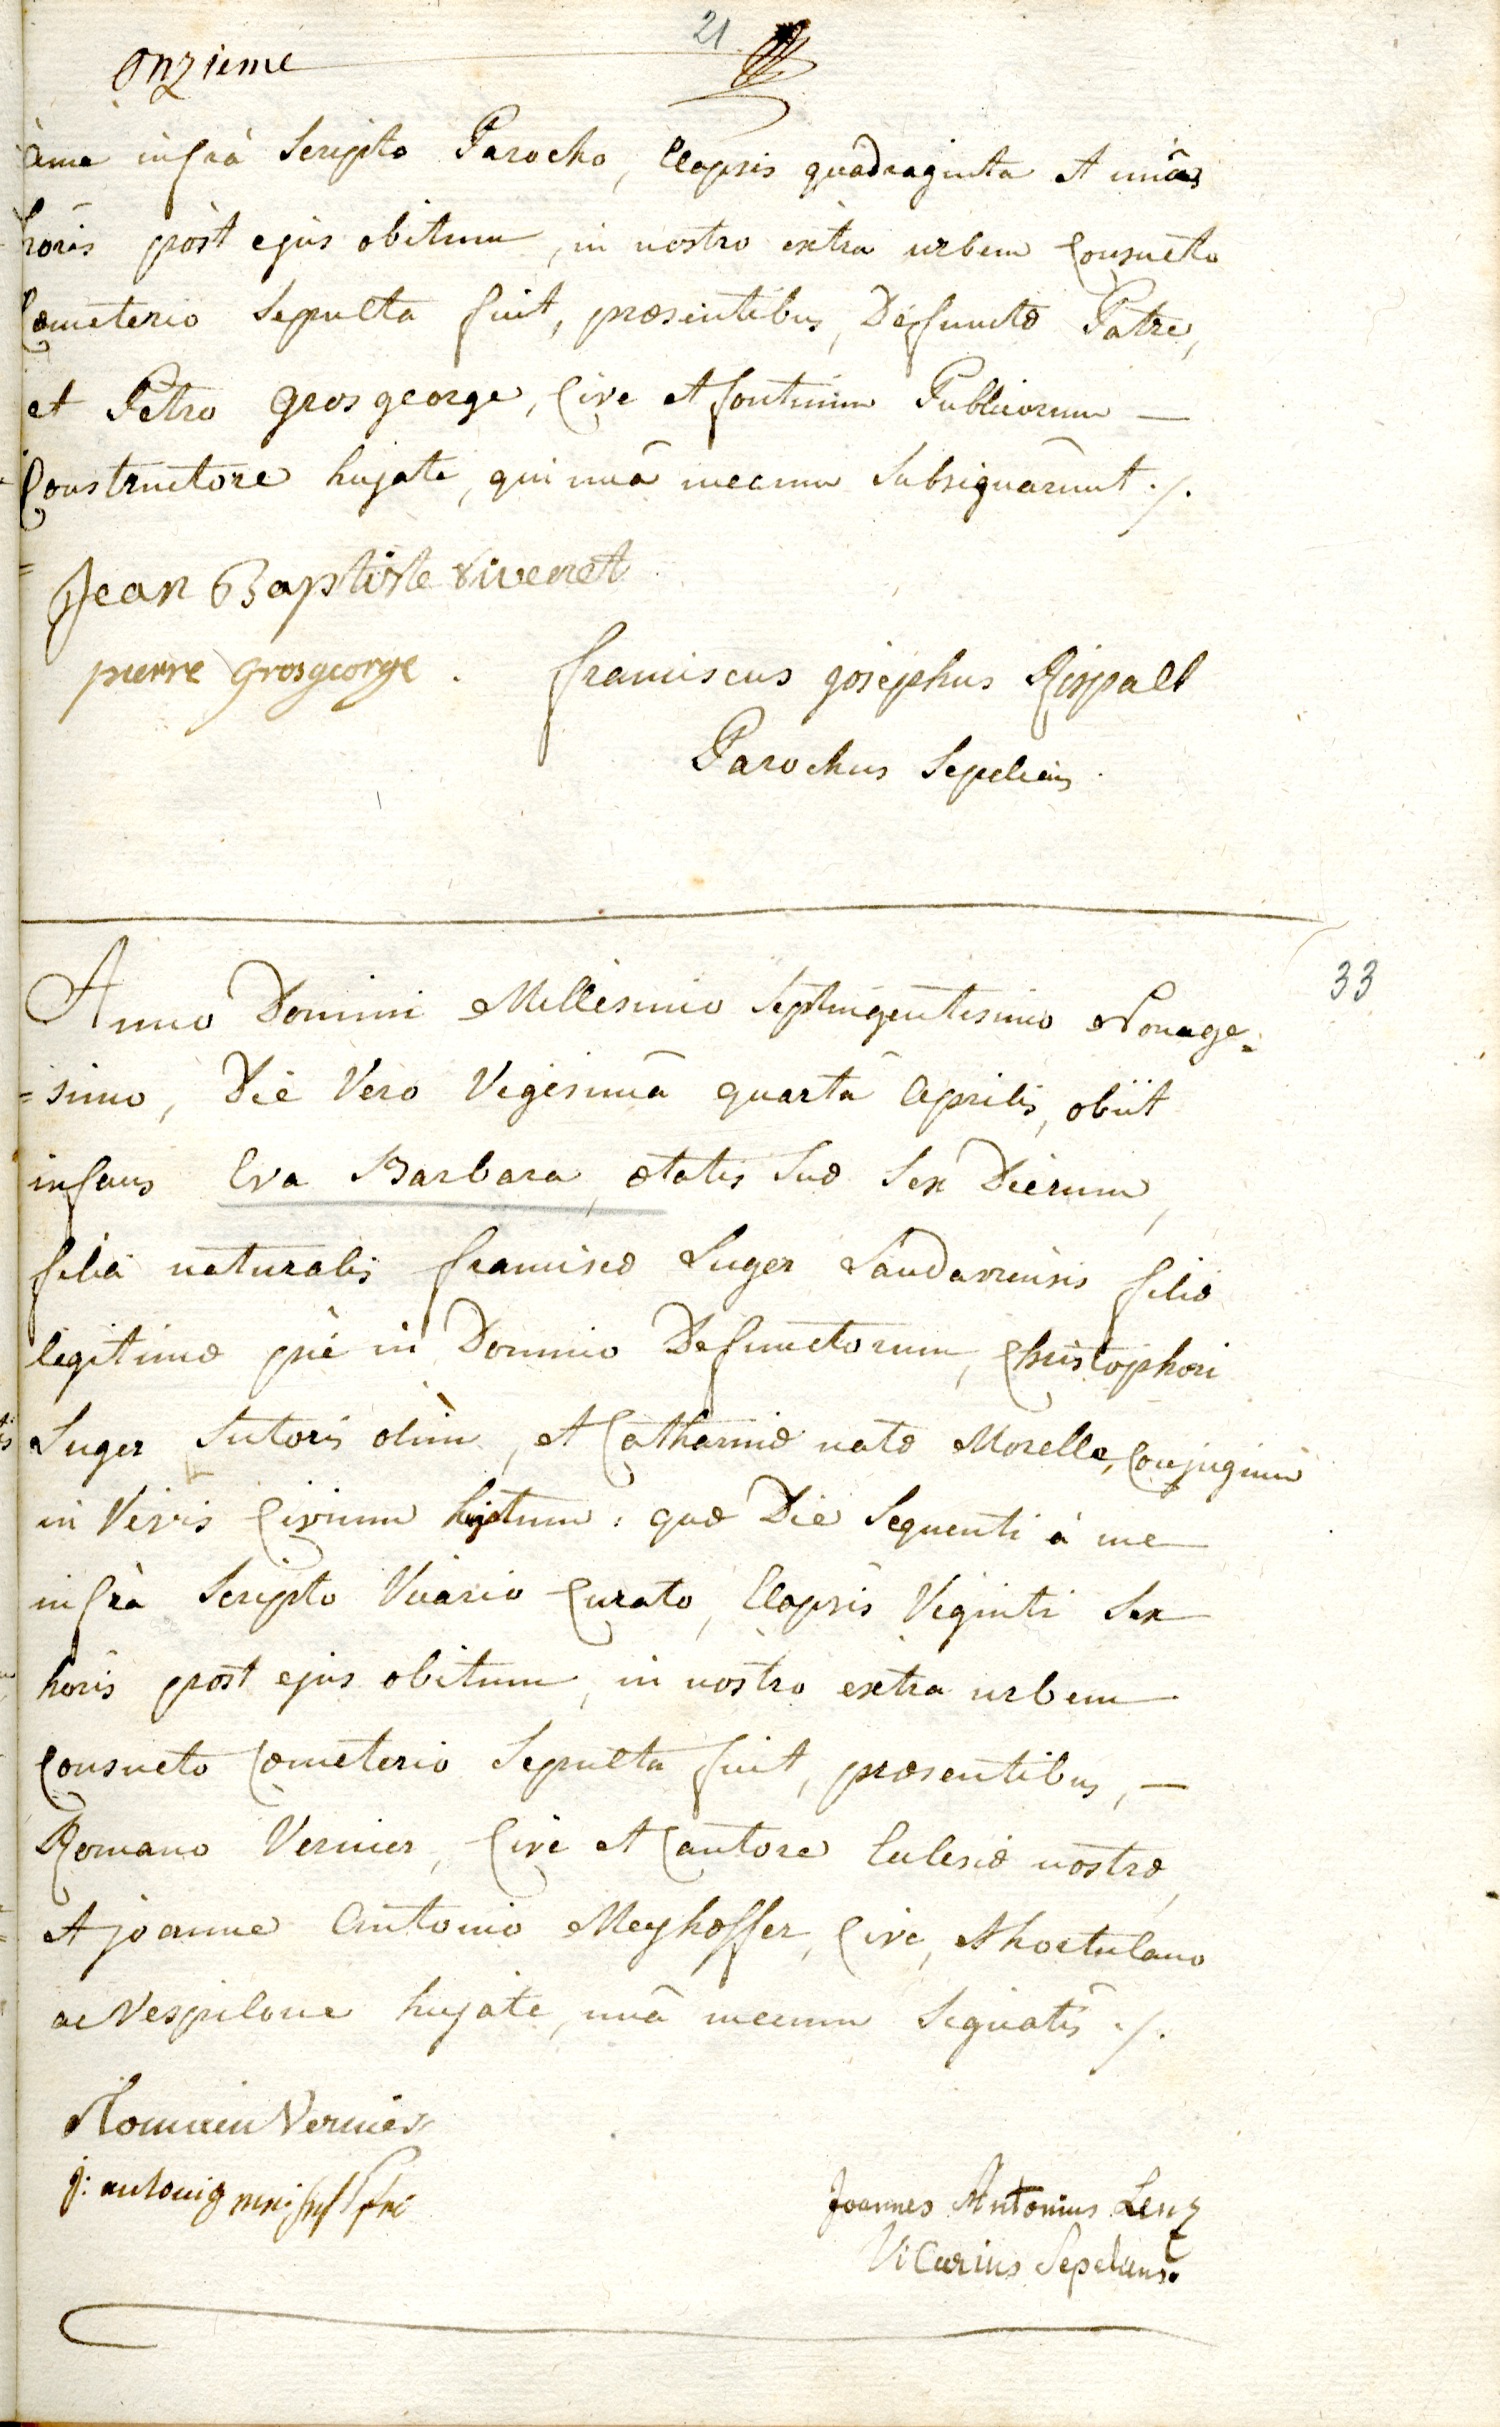 21
onzieme
à me infrà Scripto Parocho, Elapsis quadraginta et unâ
horis pòst ejus obitum, in nostro extra urbem Consueto
Cœmeterio Sepulta fuit, præsentibus, Defunctæ Patre,
et Petro grosgeorge, Cive et fontium Publicorum —
Constructore hujate, qui unâ mecum Subsignârunt ./.
Jean Baptiste vivenet
pierre grosgeorge .
franciscus josephus Rispalt
Parochus Sepeliens.
33
Anno Domini Millesimo Septingentesimo Nonage=
=simo, Die Vero Vigesimâ quartâ Aprilis, obiit
infans Eva Barbara, ætatis Suæ Sex Dierum,
filia naturalis franciscæ Luger Landavensis filiæ
legitimæ piè in Domino Defunctorum, Christophori
Luger Sutoris olim, et Catharinæ natæ Morelle, Conjugum
in Vivis Civium hujatum: quæ Die Sequenti à me
infrà Scripto Vicario Curato, Elapsis Viginti Sex
horis post ejus obitum, in nostro extra urbem
Consueto Cœmeterio Sepulta fuit, præsentibus, —
Romano Vernier, Cive et Cantore Ecclesiæ nostræ,
et joanne Antonio Meyhoffer, Cive, et hortulano
ac Vespilone hujate, unâ mecum Signatis ./.
Romain Vernier
j: antonig
Joannes Antonius Lenz
Vicarius Sepeliens.